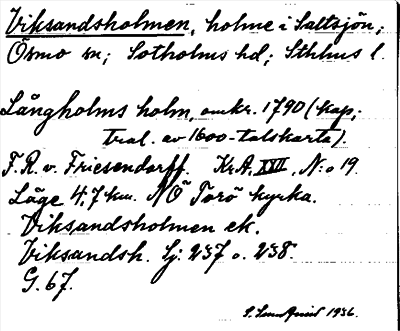 Viksandsholmen, holme i Saltsjön;
Ösmo sn; Sotholms hd; Sthlms l.
Långholms holm, omkr. 1790 (kop;
tral. av 1600-talskarta).
F.R. v. Friesendorff. Kr.A. XVII, N:o 19.
Läge 4,7 km. NÖ Torö kyrka.
Viksandsholmen ek.
Viksandsh. Sj: 237 o. 238.
G. 67.
1936.